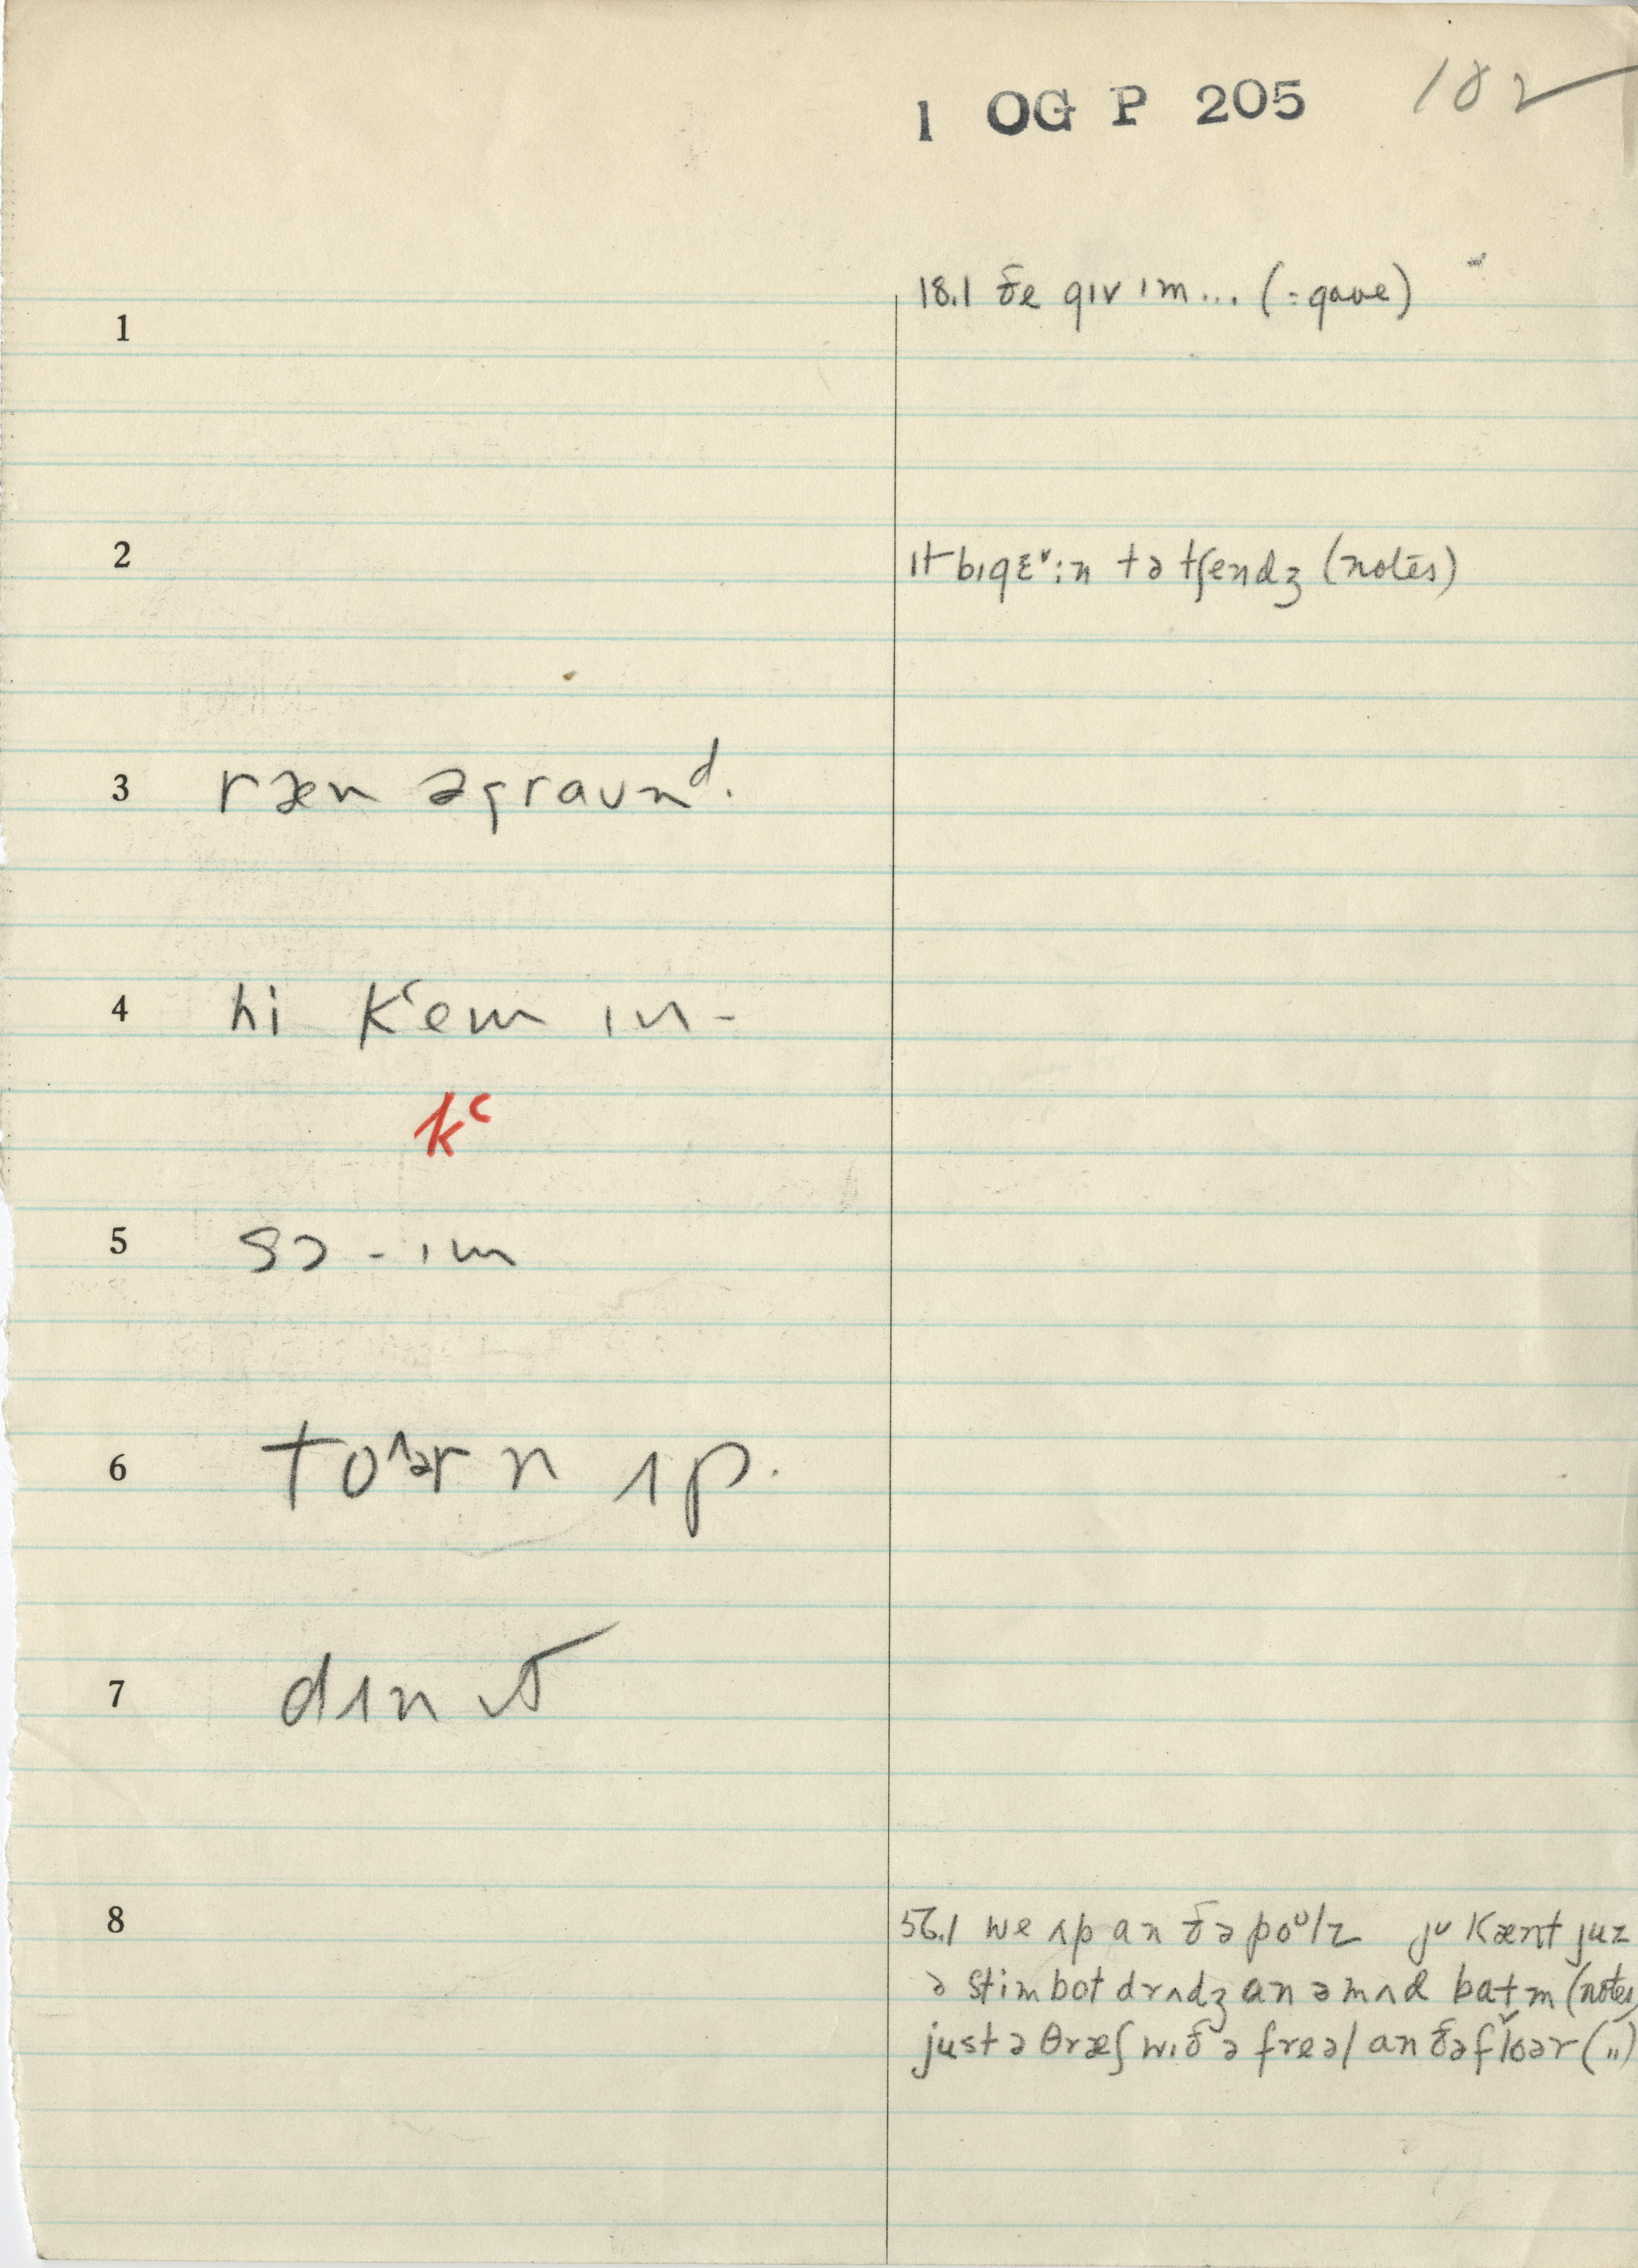 1 OG P 205 182
18.1 ðe gɪv ɪm... (= gave)
1
2 ɪt bɪgɛ˅:n tə tʃendʒ (notes)
3 ræn əgraʊnᵈ.
4 hi kʻem ɪn-
kʻ
5 sɔ - ɪm
6 toʌər n ʌp.
7 dɪn
8 56.1 we ʌp an ðə poᵁlz jʊ kænt juz
ə stimbot drʌdʒ an ə mʌd batm (notes)
just ə θræʃ wɪð ə freəl an ðə floər (")